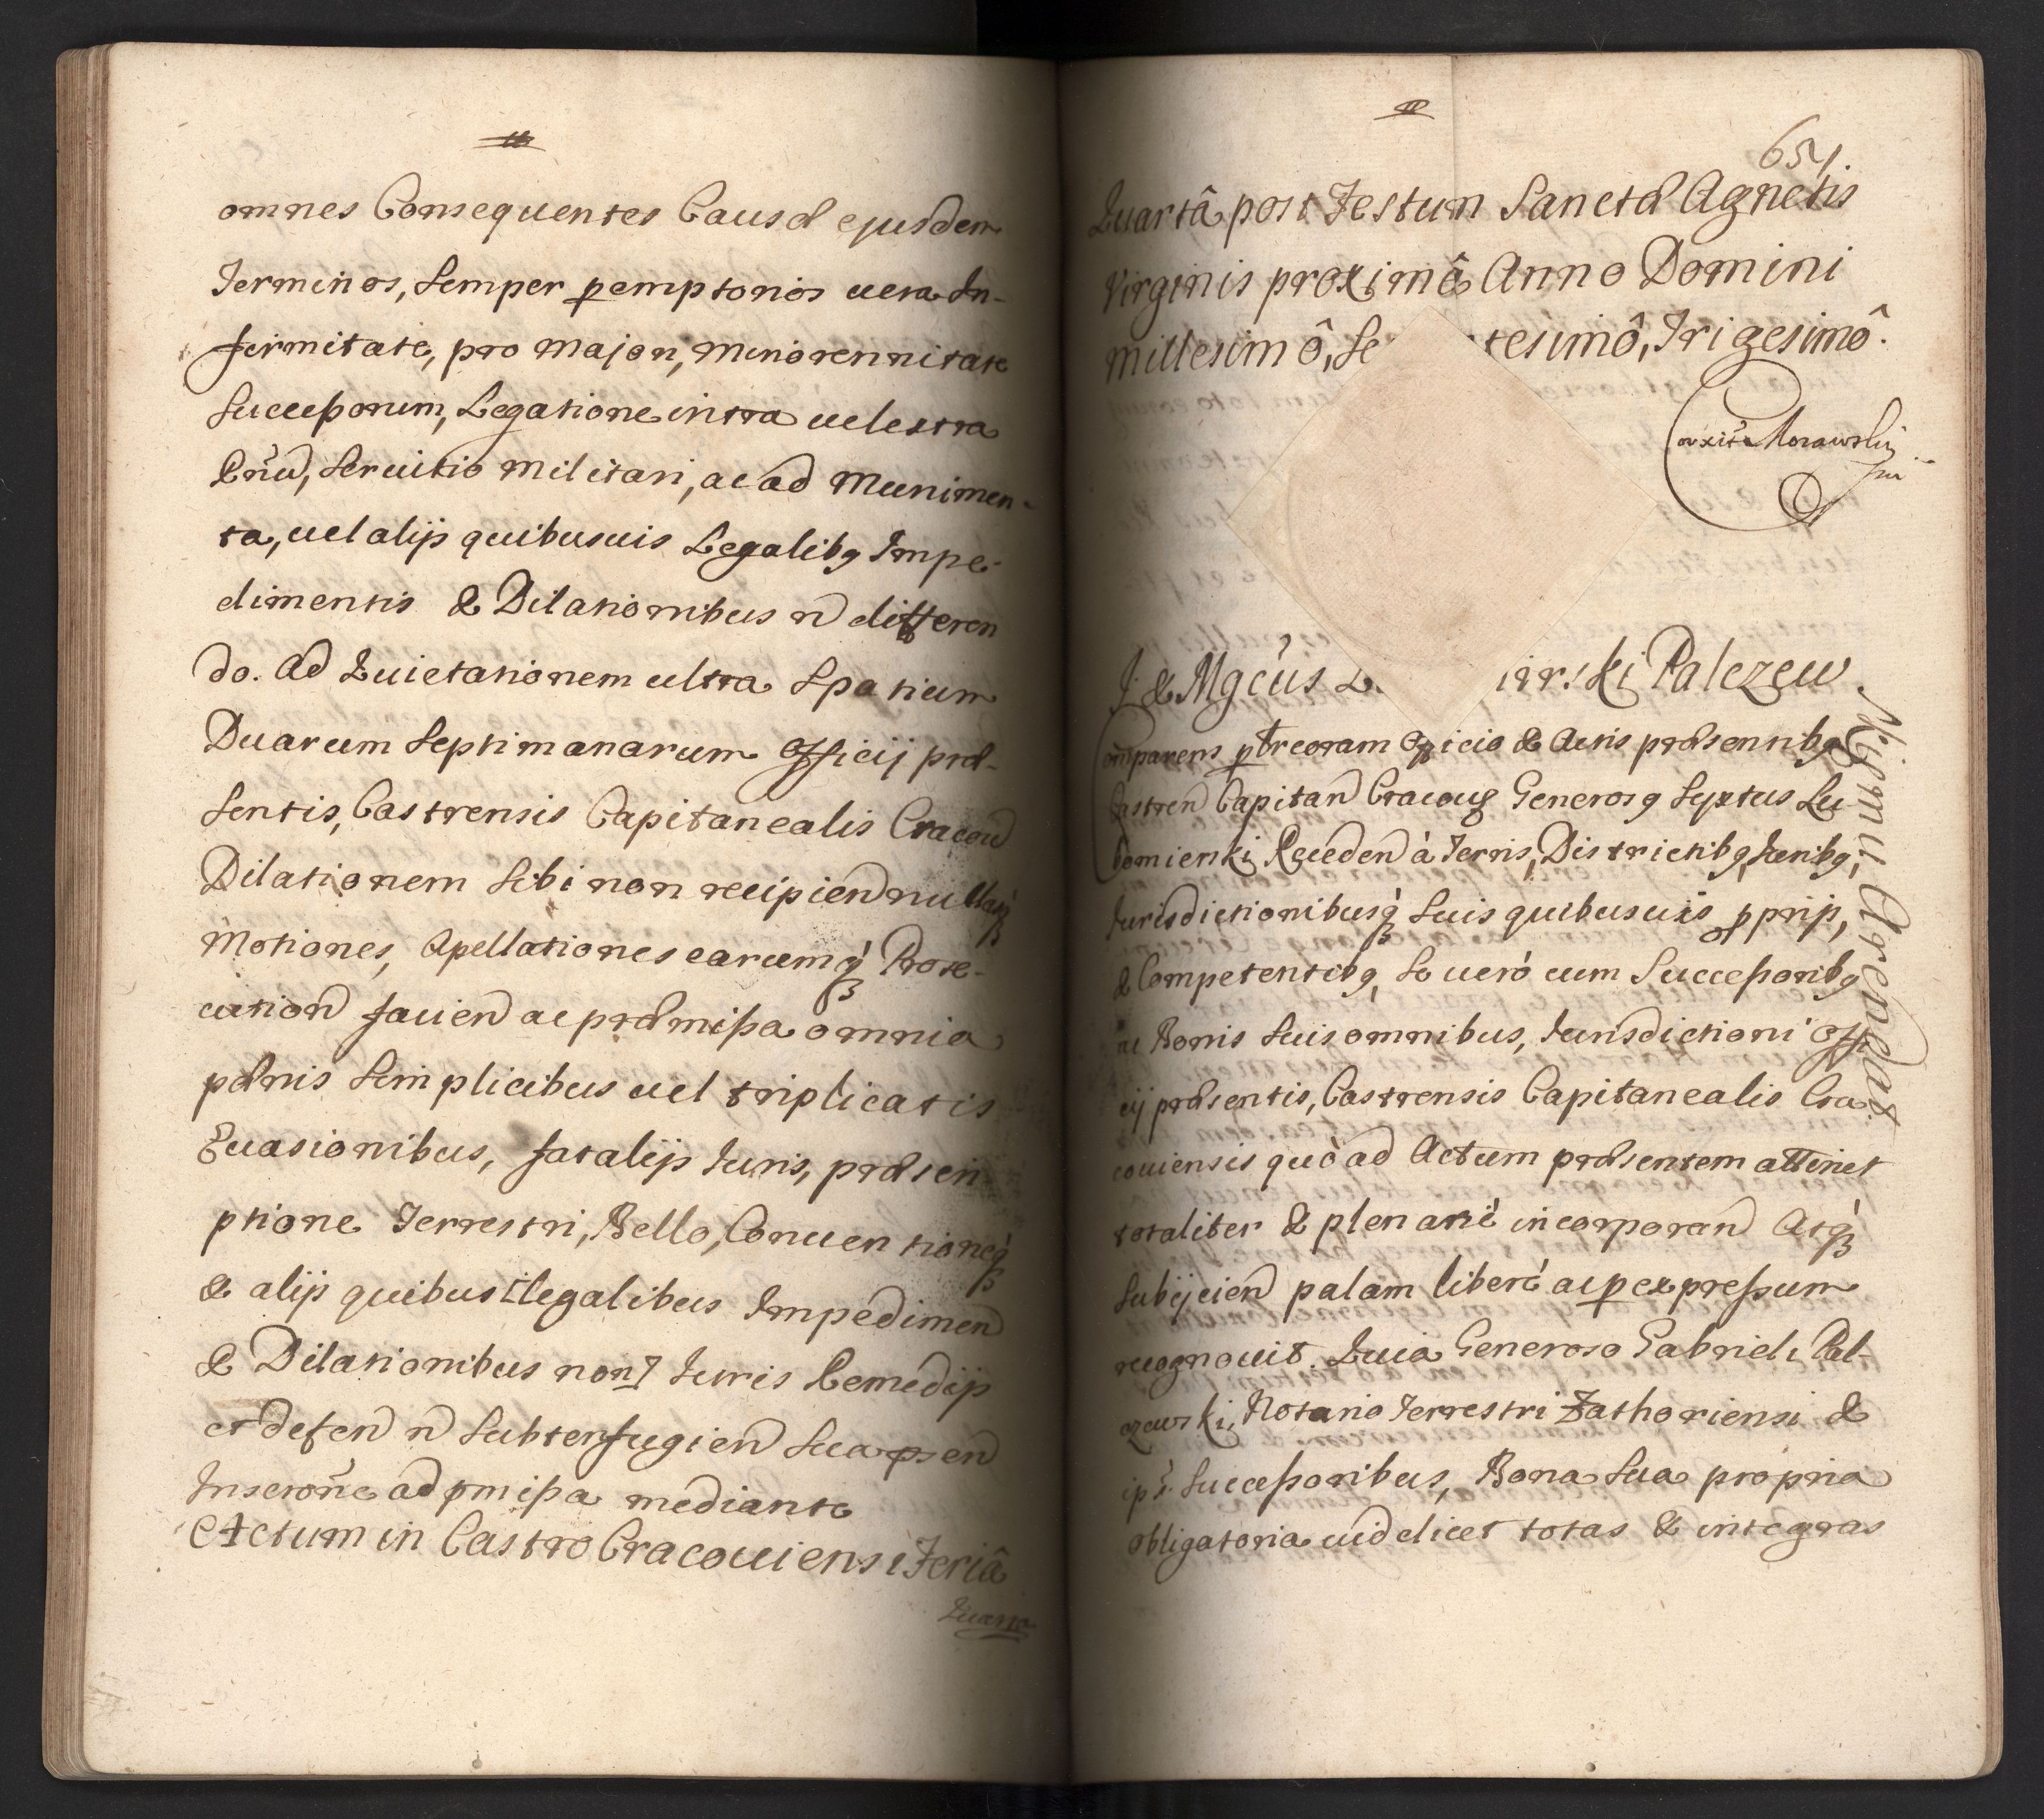 omnes Consequentes Causæ ejusdem
Terminos, Semper p̱emptorios vera In-
firmitate, pro Majori, Minorennitate
Successorum, Legatione intra vel extra
Servitio Militari, ac ad Munimen-
ta, vel alijs quibusvis Legalibq Impe-
dimentis & Dilationibus ñ differen
do. Ad Quietationem ultra Spatium
Duarum Septimanarum Officij præ-
sentis, Castrensis Capitanealis Cracov
Dilationem Sibi non recipiend nullasq́
Motiones, Apellationes earumq́ Prose-
cution facien ac præmissa omnia
pænis Simplicibus vel triplicatis
Evasionibus, fatalijs Juris, præscri-
ptione Terrestri, Bello, Conventioneq́
& alijs quibus legalibus Impedimen
& Dilationibus non Juris Remedijs
et defen ñ Subterfugien Sua
ad pmissa mediante
Actum in Castro Cracoviensi Feriâ
Quarta
651.
Quartâ post Festum Sanctæ Agnetis
Virginis proximâ Anno Domini
Millesimô, Se tesimô, Trigesimô.
Morawski
J. & Mgcús ki Palczew
Comparens Officio & Actis præsentibq
Castren Capitan Cracov Generosq Sextus Lu-
bomierski Receden à Terris, Districtibq,
Jurisdictionibusq́ Suis quibusuis pprijs,
& Competentibq, Se verò cum Successoribq
ac Bonis Suis omnibus, Jurisdictioni Offi
cij præsentis, Castrensis Capitanealis Cra-
coviensis quò ad Actum præsentem attinet
totaliter & plenariè incorporan Atq́
Subijcien palam liberè ac p̱ expressum
recognovit. Quia Generoso Gabrieli Pal-
czewski, Notario Terrestri Zathoriensi &
ips. Successoribus, Bona Sua propria
obligatoria videlicet totas & integras
Arendat.